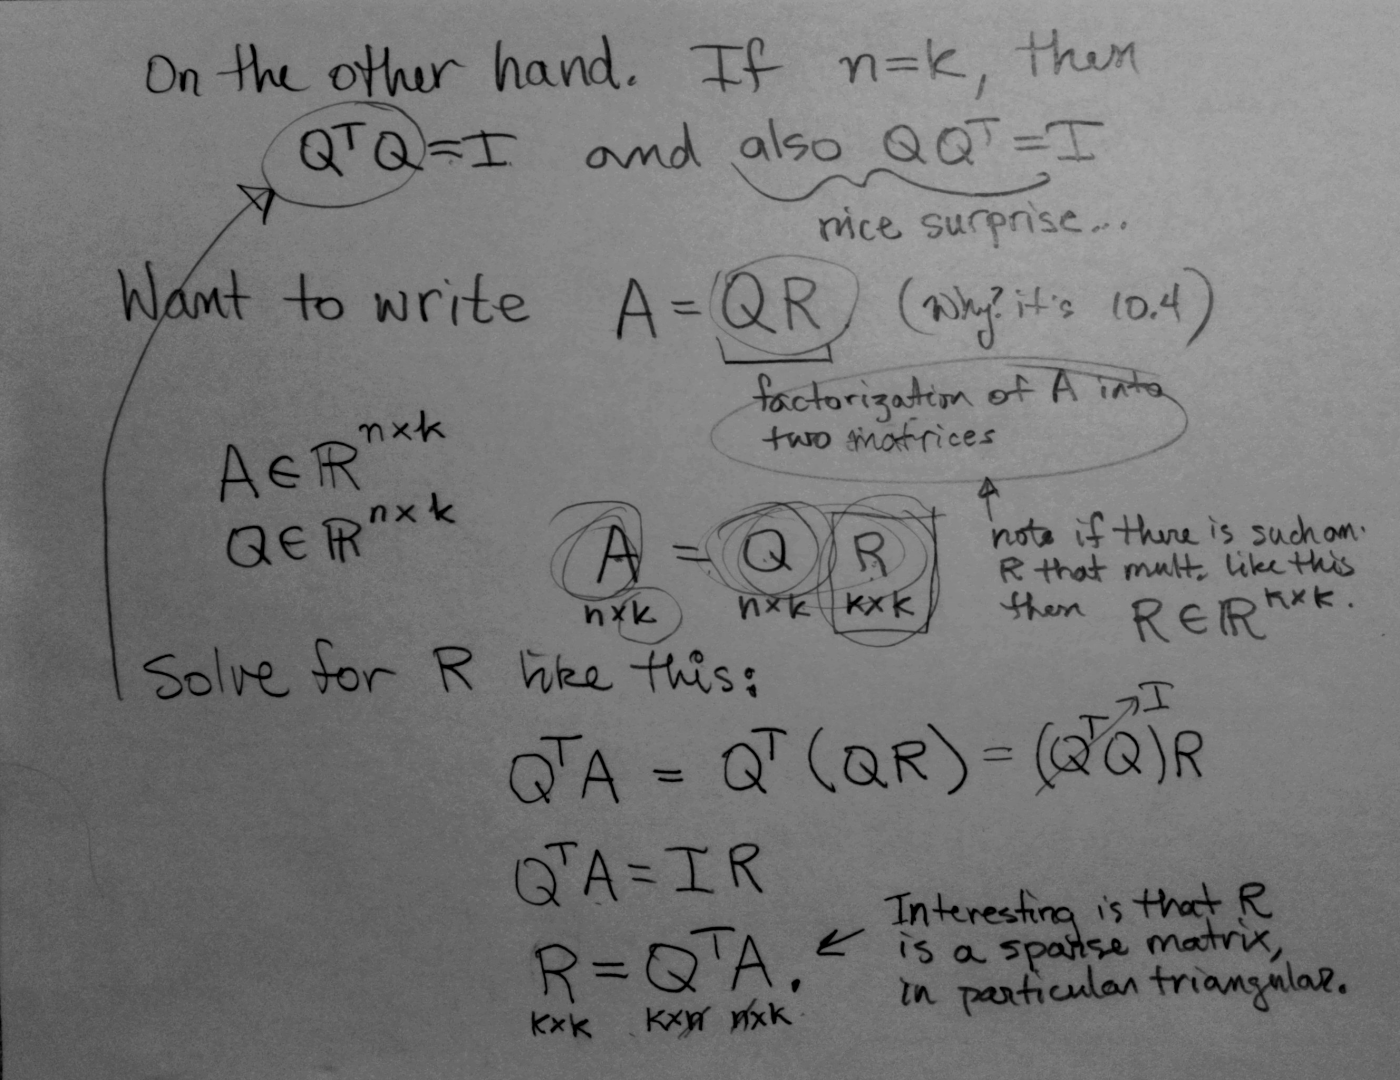 On the other hand. If n=k, then
QᵀQ=I and also QQᵀ=I
nice surprise...
Want to write A=QR. (Why? it's 10.4)
factorization of A into
two matrices
A∈ℝⁿˣᵏ
Q∈ℝⁿˣᵏ
A = Q R
n×k n×k k×k
note if there is such an
R that mult. like this
then R∈ℝᵏˣᵏ.
Solve for R like this:
QᵀA = Qᵀ(QR) = (QᵀQ)R
I
QᵀA = IR
R = QᵀA.
k×k k×n n×k
Interesting is that R
is a sparse matrix,
in particular triangular.